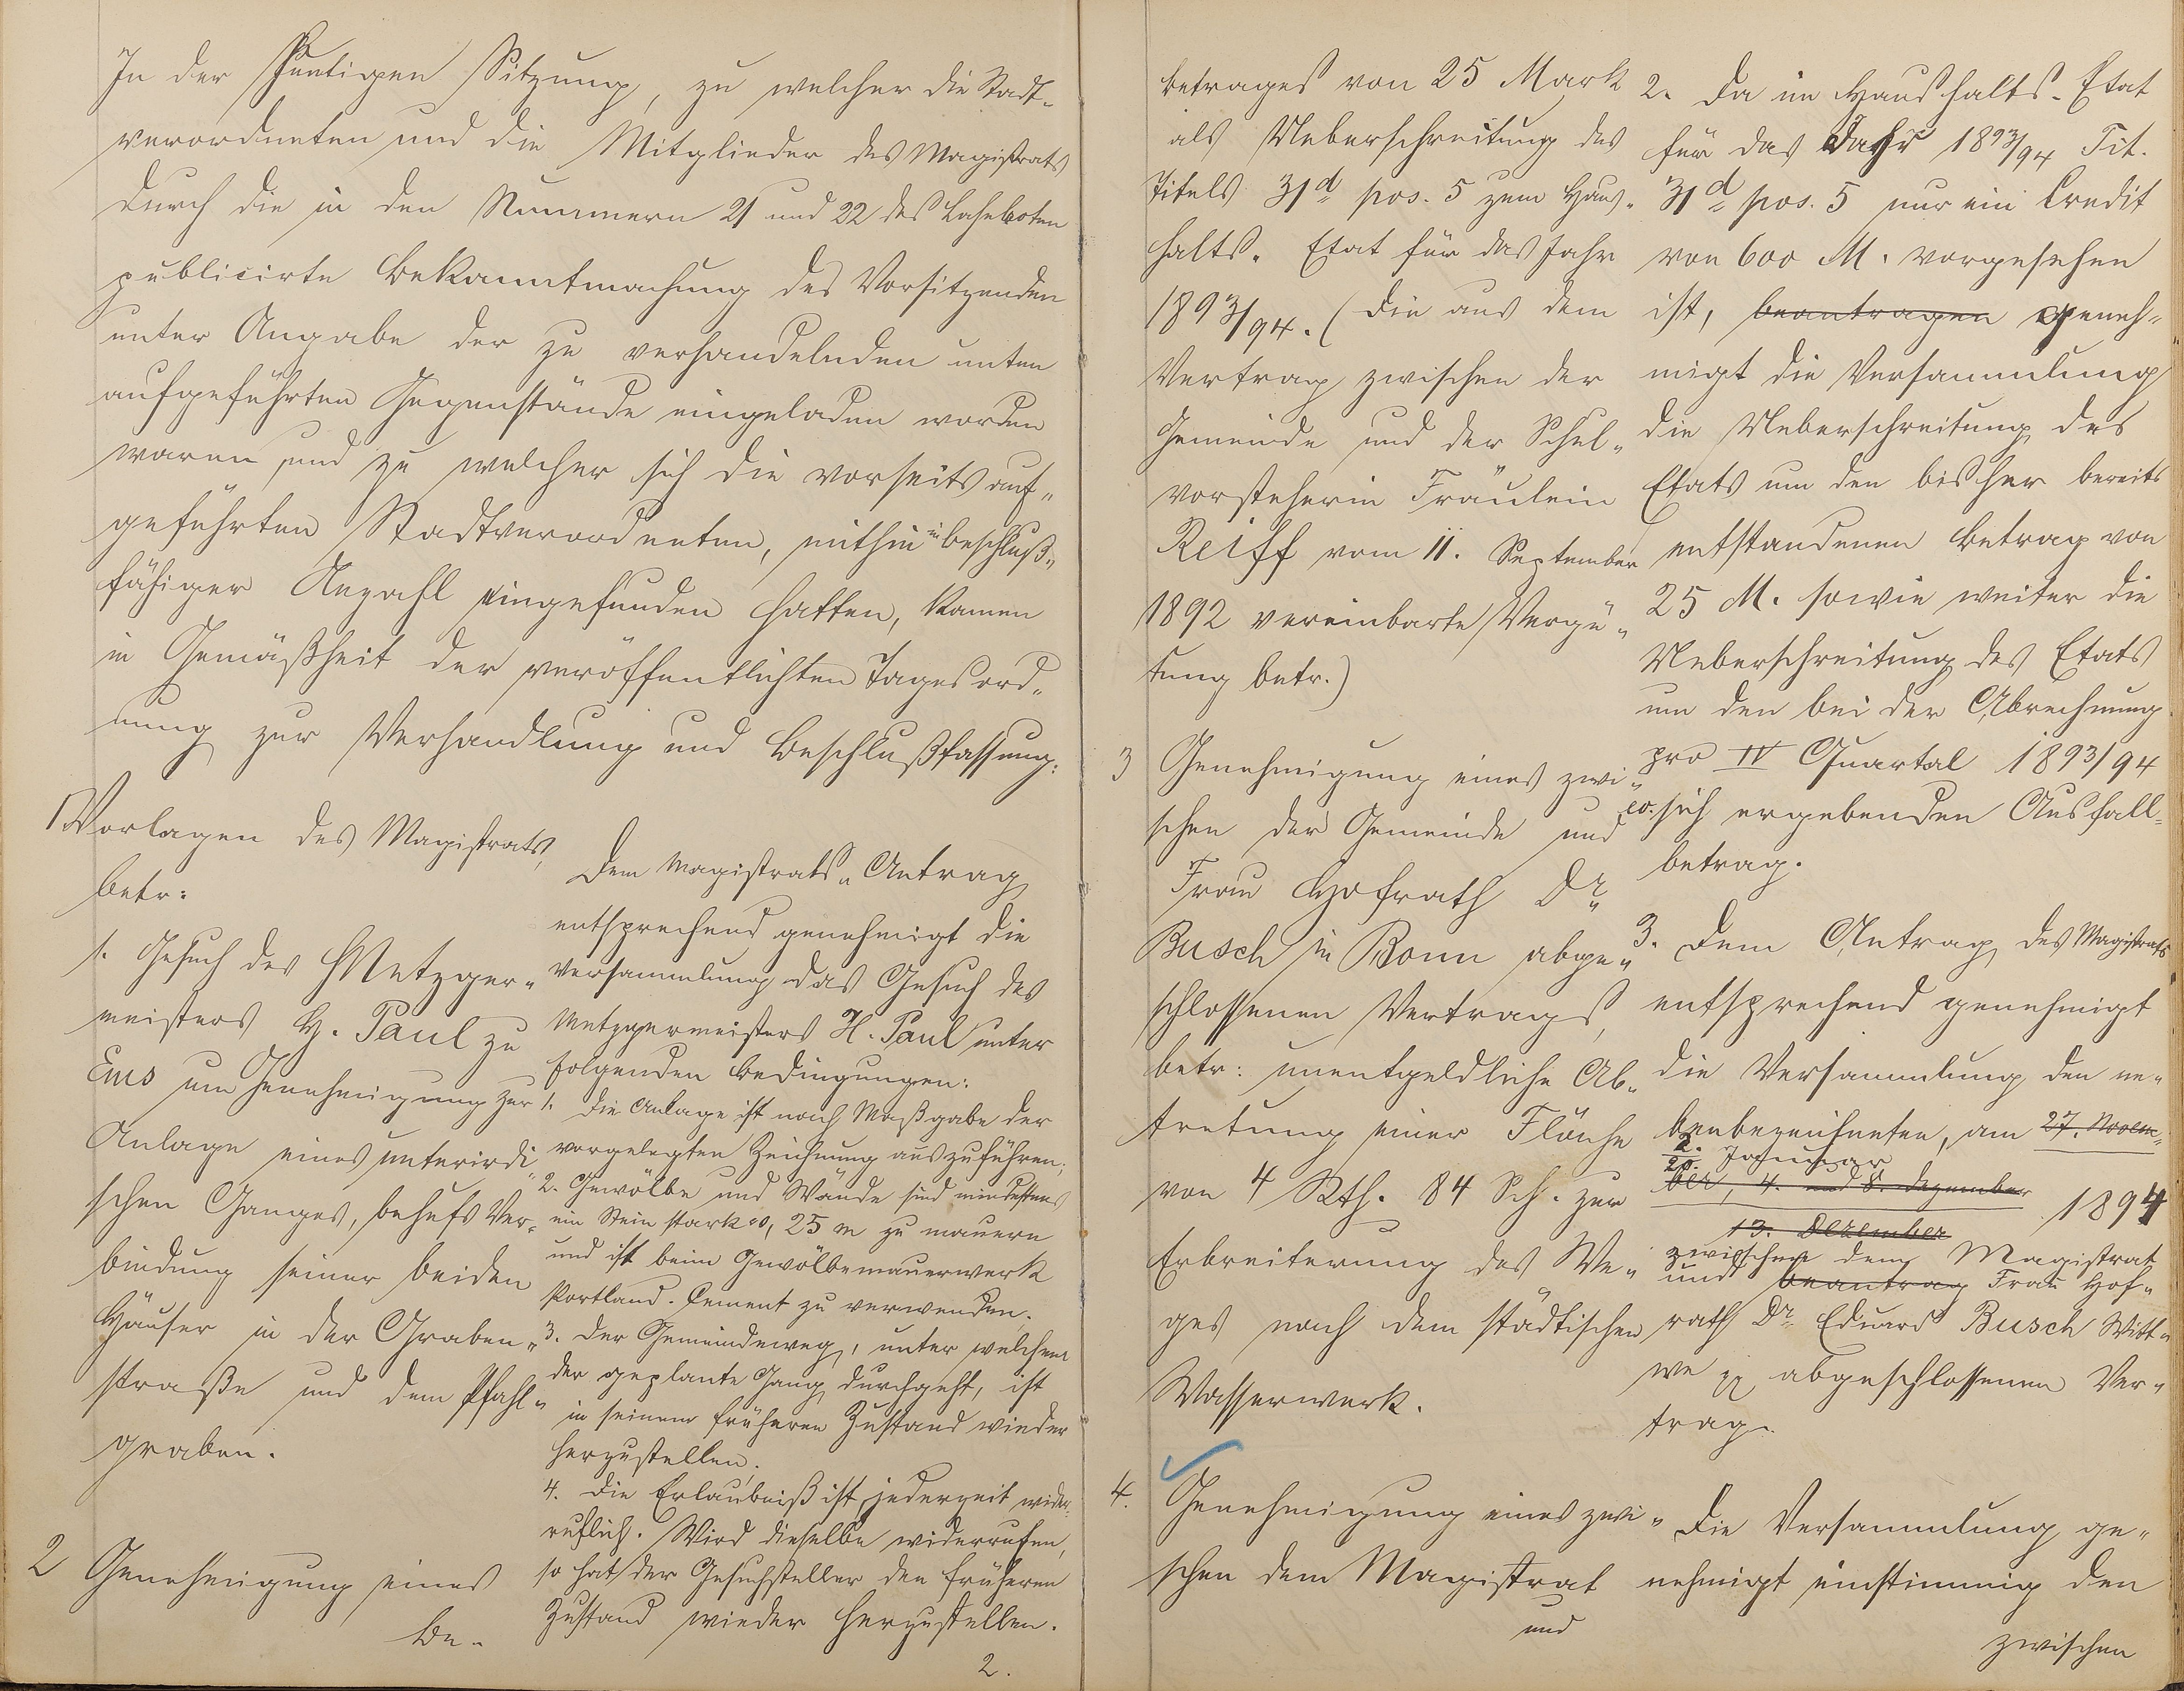 In der heutigen Sitzung, zu welcher die Stadt-
verordneten und die Mitglieder des Magistrats
durch die in den Nummern 21 und 22 des Lahnboten
publicirte Bekanntmachung des Vorsitzenden
unter Angabe der zu verhandelnden unten
aufgeführten Gegenstände eingeladen worden
waren, und zu welcher sich die vorseits auf-
geführten Stadtverordneten, mithin in beschluß-
fähiger Anzahl eingefunden hatten, kamen
in Gemäßheit der veröffentlichten Tagesord-
nung zur Verhandlung und Beschlußfassung:
1 Vorlagen des Magistrats,
betr:
1. Gesuch des Metzger-
meisters H. Paul zu
Ems um Genehmigung zur
Anlage eines unterirdi-
schen Ganges, behufs Ver-
bindung seiner beiden
Häuser in der Graben-
straße und dem Pfahl-
graben.
2 Genehmigung eines
Be-
Dem Magistrats-Antrag
entsprechend genehmigt die
Versammlung das Gesuch des
Metzgermeisters H. Paul unter
folgenden Bedingungen:
1. Die Anlage ist nach Maßgabe der
vorgelegten Zeichnung auszuführen;
2. Gewölbe und Wände sind mindestens
ein Stein stark = 0,25 m zu mauern
und ist beim Gewölbemauerwerk
Portland-Cement zu verwenden.
3. Der Gemeindeweg, unter welchem
der geplante Gang durchgeht, ist
in seinem früheren Zustand wieder
herzustellen.
4. Die Erlaubniß ist jederzeit wider-
ruflich. Wird dieselbe widerrufen,
so hat der Gesuchsteller den früheren
Zustand wieder herzustellen.
2.
betrages von 25 Mark
als Ueberschreitung des
Titels 31d pos. 5 zum Haus-
halts-Etat für das Jahr
1893/94. (Die aus dem
Vertrag zwischen der
Gemeinde und der Schul-
vorsteherin Fräulein
Reiff vom 11. September
1892 vereinbarte Vergü-
tung betr.)
3 Genehmigung eines zwi-
schen der Gemeinde und
Frau Hofrath Dr.
Busch in Bonn abge-
schlossenen Vertrags,
betr: unentgeldliche Ab-
tretung einer Fläche
von 4 Rth. 84 Sch. zur
Erbreiterung des We-
ges nach dem städtischen
Wasserwerk.
4. Genehmigung eines zwi-
schen dem Magistrat
und
2. Da im Haushalts-Etat
für das Jahr 1893/94 Tit.
31d pos. 5 nur ein Credit
von 600 M. vorgesehen
ist, beantragen geneh-
migt die Versammlung
die Ueberschreitung des
Etats um den bisher bereits
entstandenen Betrag von
25 M. sowie weiter die
Ueberschreitung des Etats
um den bei der Abrechnung
pro IV Quartal 1893/94
eo. sich ergebenden Ausfall-
betrag.
3. Dem Antrag des Magistrats
entsprechend genehmigt
die Versammlung den ne-
benbezeichneten, am 27. Novem-
2. Januar
20.
ber, 4. und 8. Dezember 1894
13. Dezember
zwischen dem Magistrat
und beantrag Frau Hof-
rath Dr. Eduard Busch Witt-
we abgeschlossenen Ver-
trag.
Die Versammlung ge-
nehmigt einstimmig den
zwischen